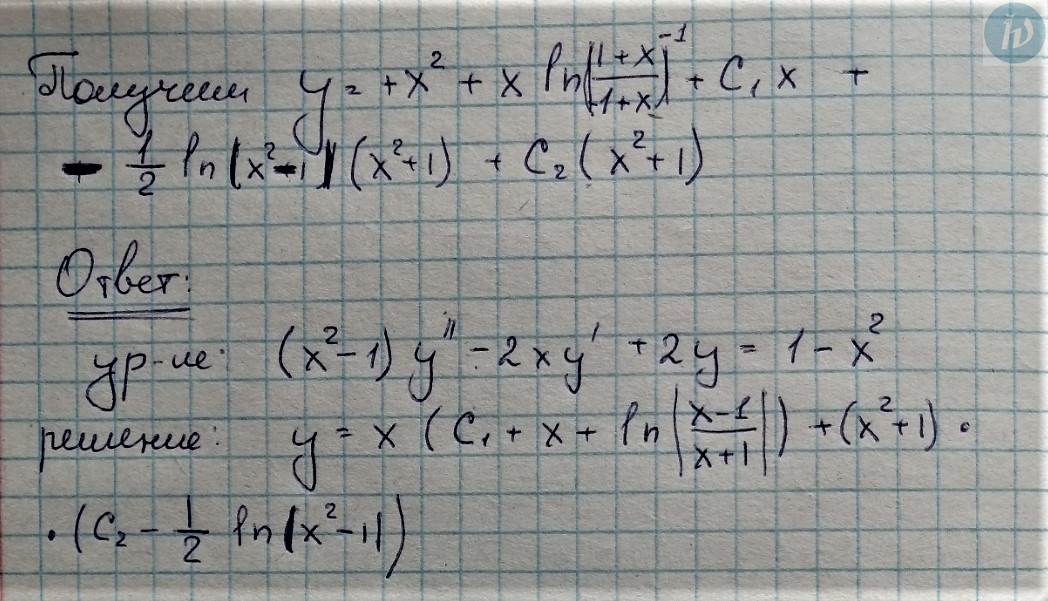 Получим y = +x² + x ln|(1+x)/(-1+x)|⁻¹ + C₁x +
- 1/2 ln|x²-1|(x²+1) + C₂(x²+1)
Ответ:
ур-ие: (x²-1)y'' - 2xy' + 2y = 1 - x²
решение: y = x(C₁ + x + ln|(x-1)/(x+1)|) + (x²+1) ·
· (C₂ - 1/2 ln|x²-1|)